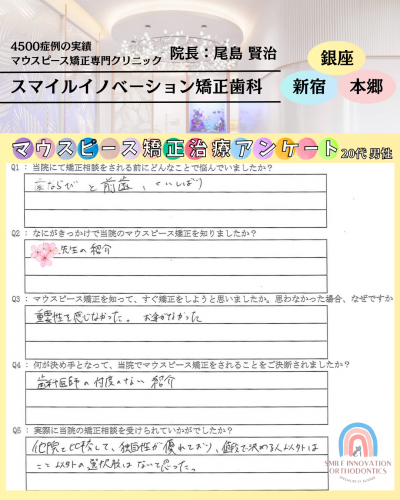 4500症例の実績
マウスピース矯正専門クリニック 院長：尾島 賢治
スマイルイノベーション矯正歯科
銀座
新宿 本郷
マウスピース矯正治療アンケート 20代 男性
Q1： 当院にて矯正相談をされる前にどんなことで悩んでいましたか？
歯ならびと前歯、くいしばり
Q2： なにがきっかけで当院のマウスピース矯正を知りましたか？
先生の紹介
Q3： マウスピース矯正を知って、すぐ矯正をしようと思いましたか。思わなかった場合、なぜですか
重要性を感じなかった。 お金がなかった
Q4： 何が決め手となって、当院でマウスピース矯正をされることをご決断されましたか？
歯科医師の忖度のない 紹介
Q5： 実際に当院の矯正相談を受けられていかがでしたか？
他院と比較して、独自性が優れており、値段で決める人以外は
ここ以外の選択肢はないと思った。
SMILE INNOVATION
ORTHODONTICS